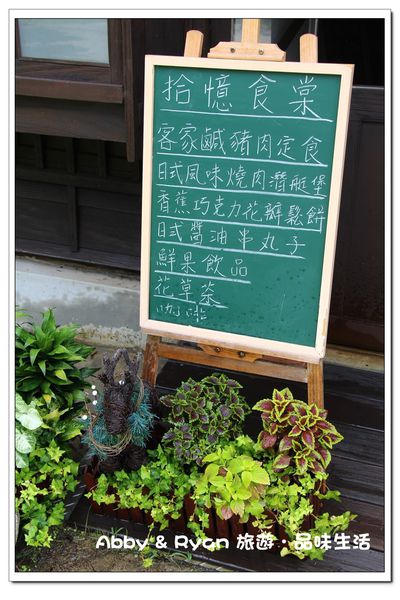 拾憶食棠
客家鹹豬肉定食
日式風味燒肉潛艇堡
香蕉巧克力花瓣鬆餅
日式醬油串丸子
鮮果飲品
花草茶
咖啡
Abby & Ryan 旅遊·品味生活